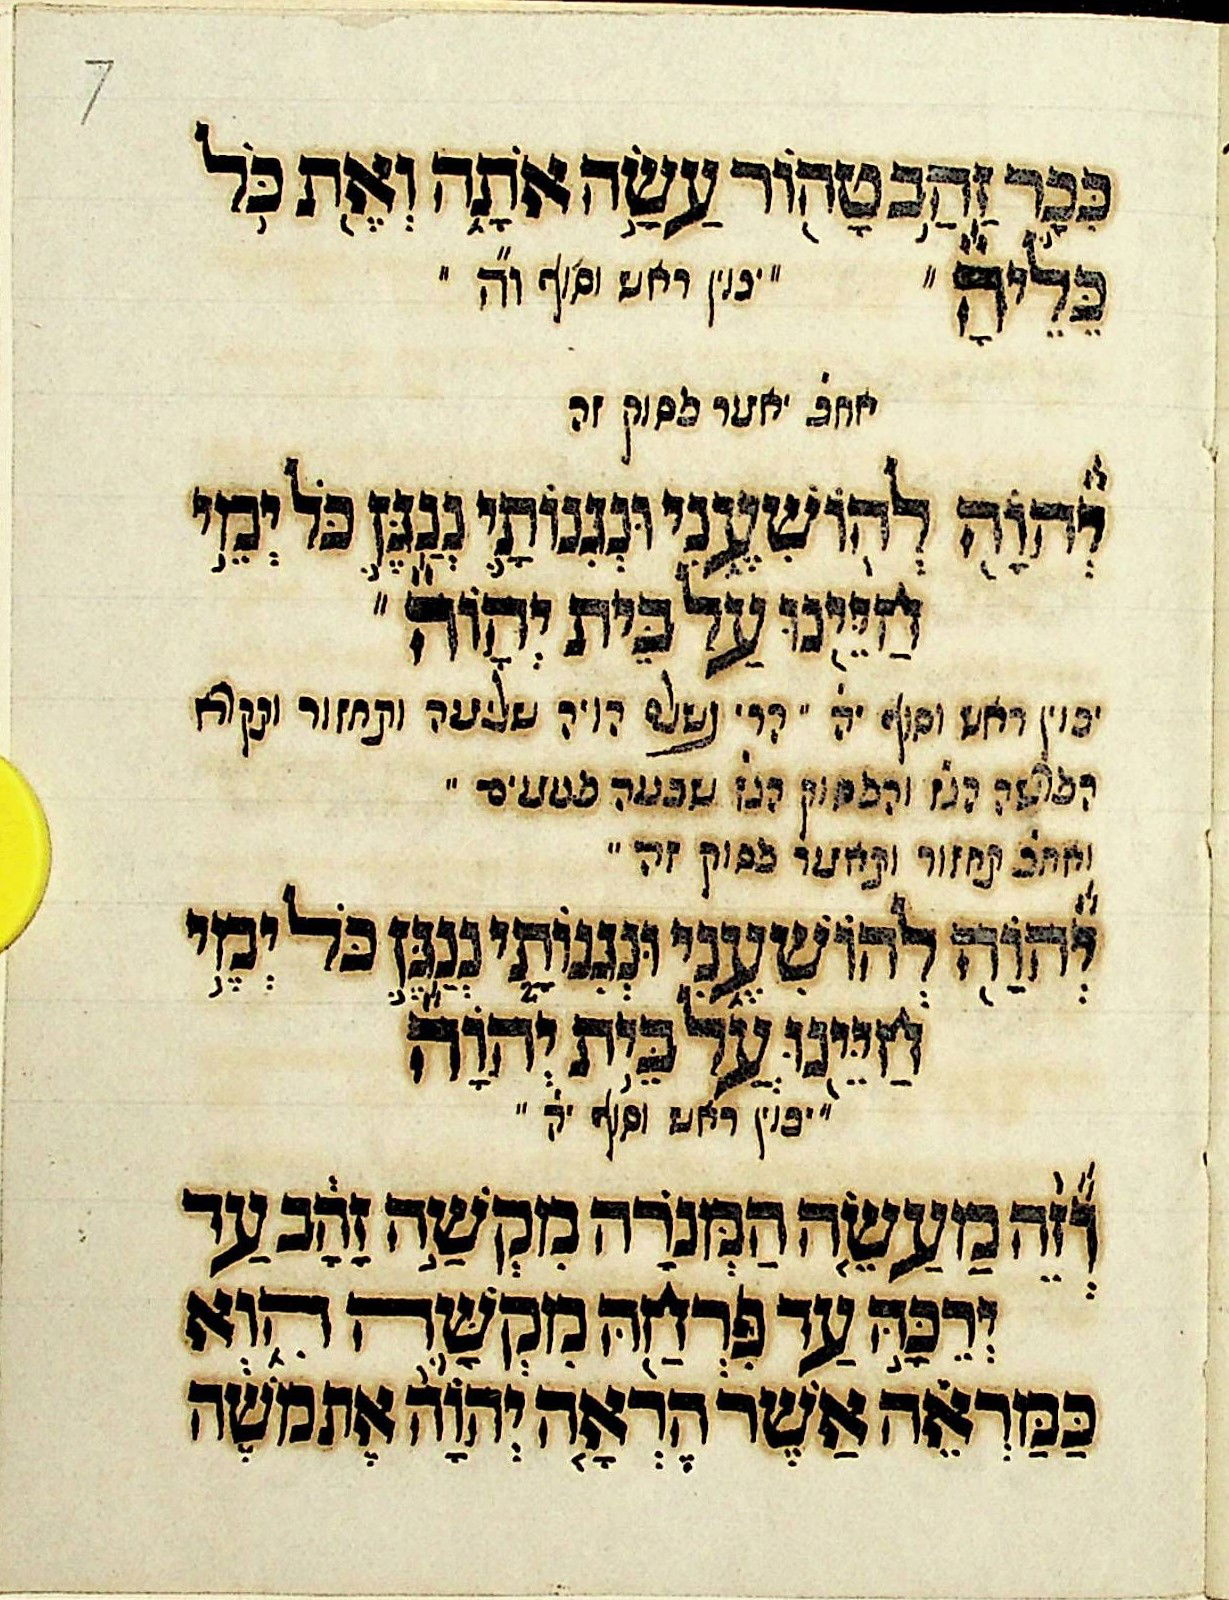 7
כִּכָּר זָהָב טָהוֹר עָשָׂה אֹתָהּ וְאֵת כׇּל
כֵּלֶיהָ " " יכוין ראש וסוף ו"ה "
אח"כ יאמר פסוק זה
יְהוָה לְהוֹשִׁיעֵנִי וּנְגִנוֹתַי נְנַגֵּן כׇּל יְמֵי
חַיֵּינוּ עַל בֵּית יְהוָה "
יכוין ראש וסוף י"ה " הרי נשלם הויה שלימה ותחזור ותקרא
המזמור הנז' והפסוק הנז' שבעה פעמים "
ואח"כ תחזור ותאמר פסוק זה "
יְהוָה לְהוֹשִׁעֵנִי וּנְגִנוֹתַי נְנַגֵּן כׇּל יְמֵי
חַיֵּינוּ עַל בֵּית יְהוָה
" יכוין ראש וסוף י"ה "
וְזֶה מַעֲשֵׂה הַמְּנֹרָה מִקְשָׁה זָהָב עַד
יְרֵכָהּ עַד פִּרְחָהּ מִקְשָׁה הִוא
כַּמַּרְאֶה אֲשֶׁר הֶרְאָה יְהוָה אֶת מֹשֶׁה